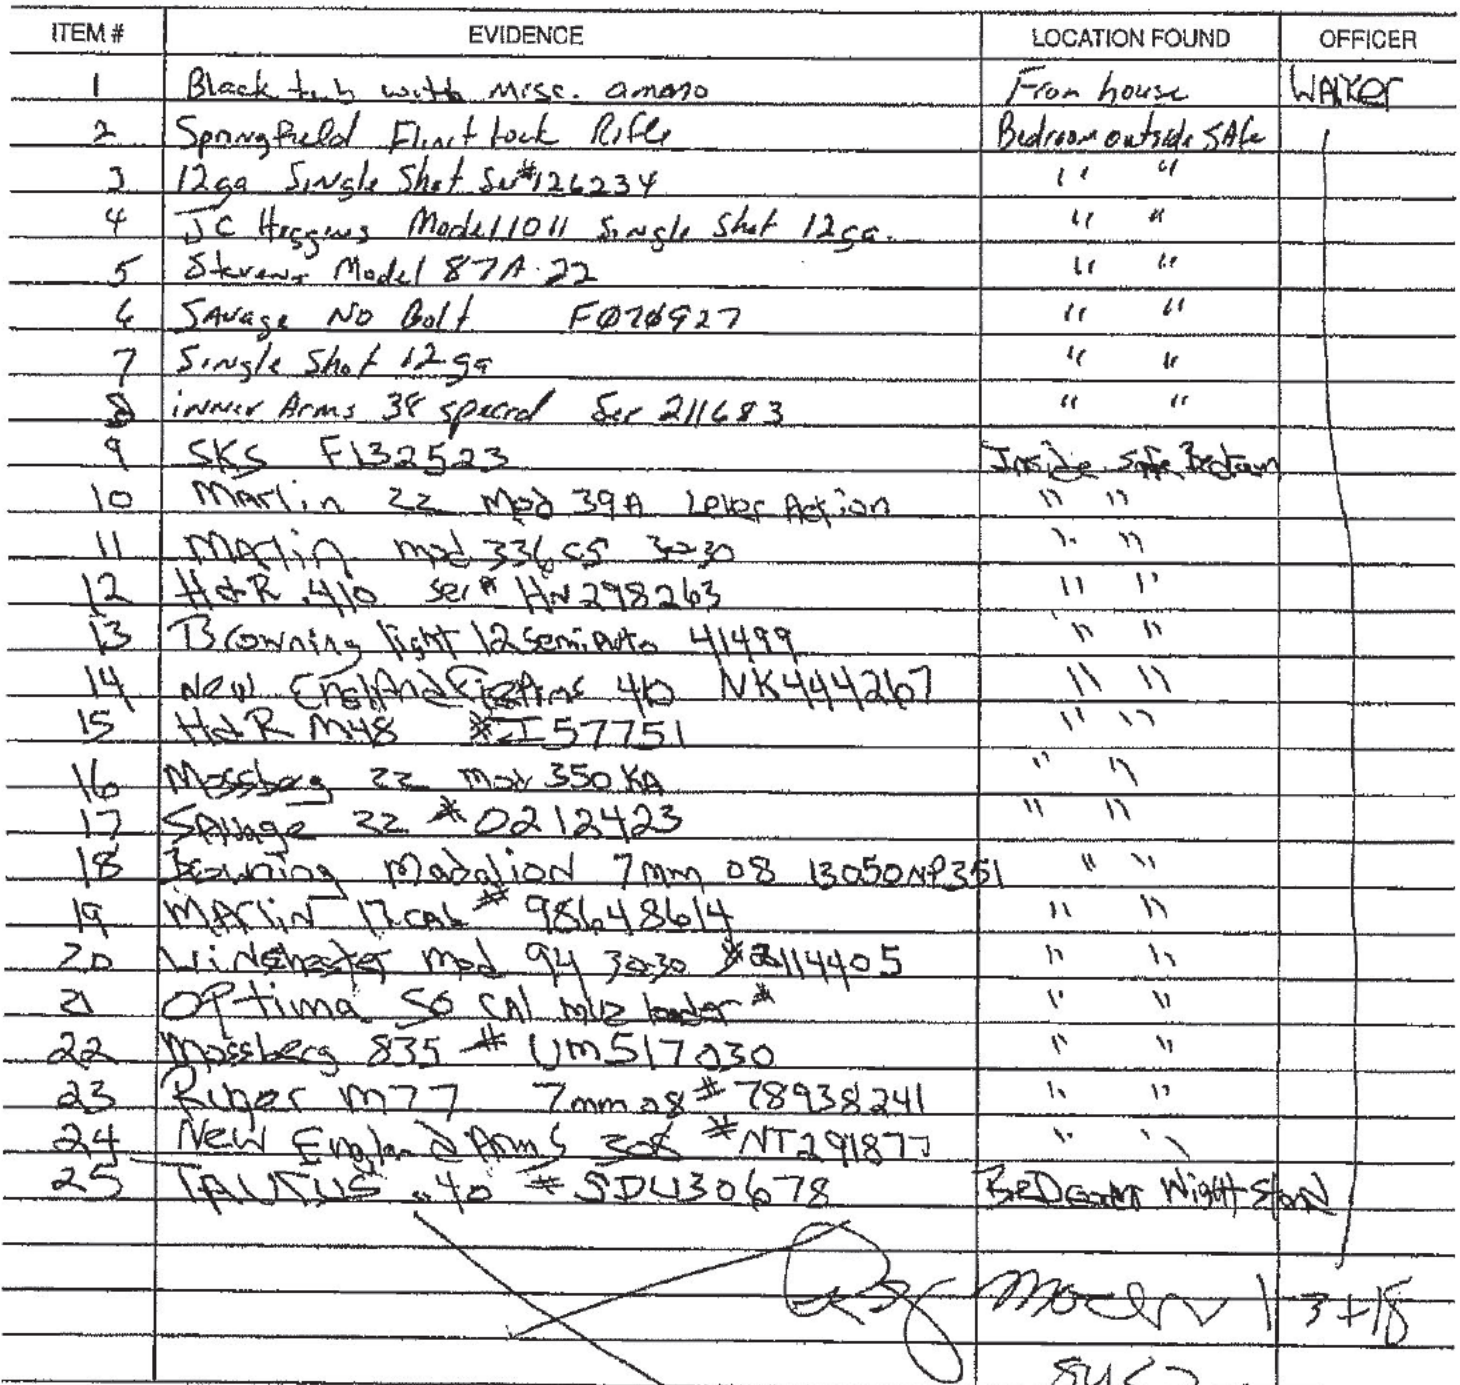 ITEM # EVIDENCE LOCATION FOUND OFFICER
1 Black tub with misc. ammo From house Walker
2 Springfield Flint lock Rifle Bedroom outside Safe
3 12ga Single Shot Ser#126234 " "
4 JC Higgins Model 1011 Single Shot 12ga. " "
5 Stevens Model 87A .22 " "
6 Savage No Bolt " "
7 Single Shot 12 ga " "
8 inner Arms 38 Ser 211683 " "
9 SKS F132523 Inside Safe Bedroom
10 Marlin 22 Mod 39A Lever Action " "
11 Marlin mod 336 CS 30-30 " "
12 H&R .410 Ser# HN298263 " "
13 Browning light 12 Semi Auto 41499 " "
14 New England FireArms 410 NK444267 " "
15 H&R M48 " "
16 Mossberg 22 Mod 350 KA " "
17 Savage 22 #0212423 " "
18 Browning Madalion 7mm 08 13050NP351 " "
19 Marlin 17 cal # 98648614 " "
20 Winchester Mod 94 30-30 " "
21 Optima 50 CAL muz loader # " "
22 Mossberg 835 # UM517030 " "
23 Ruger M77 7mm 08 # 78938241 " "
24 New England Arms 308 #NT291877 " "
25 TAURUS .40 # SDU30678 Bedroom Night Stand